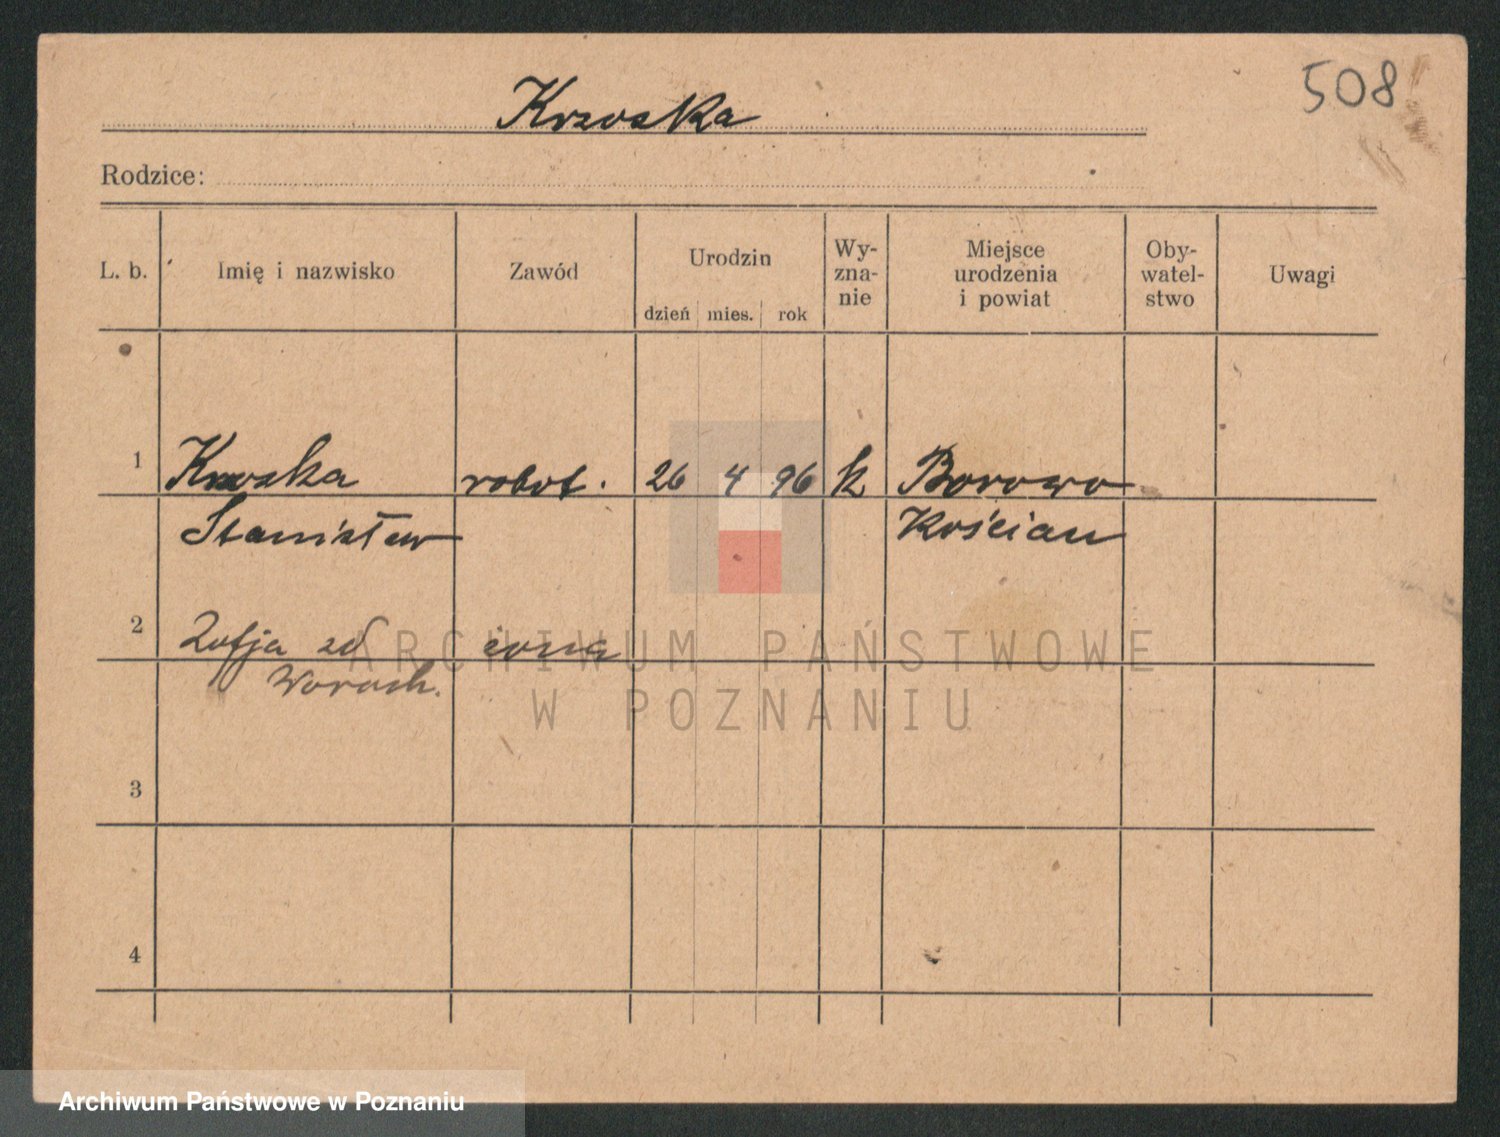 508
Krzoska
Rodzice:
L. b.
Imię i nazwisko
Zawód
Urodzin
dzień mies. rok
Wy-
zna-
nie
Miejsce
urodzenia
i powiat
Oby-
watel-
stwo
Uwagi
1 Krzoska robot. 26 4 96 k Borowo
Stanisław Kościan
2 Zofja zd żona
Worach.
3
4
ARCHIWUM PAŃSTWOWE
W POZNANIU
Archiwum Państwowe w Poznaniu